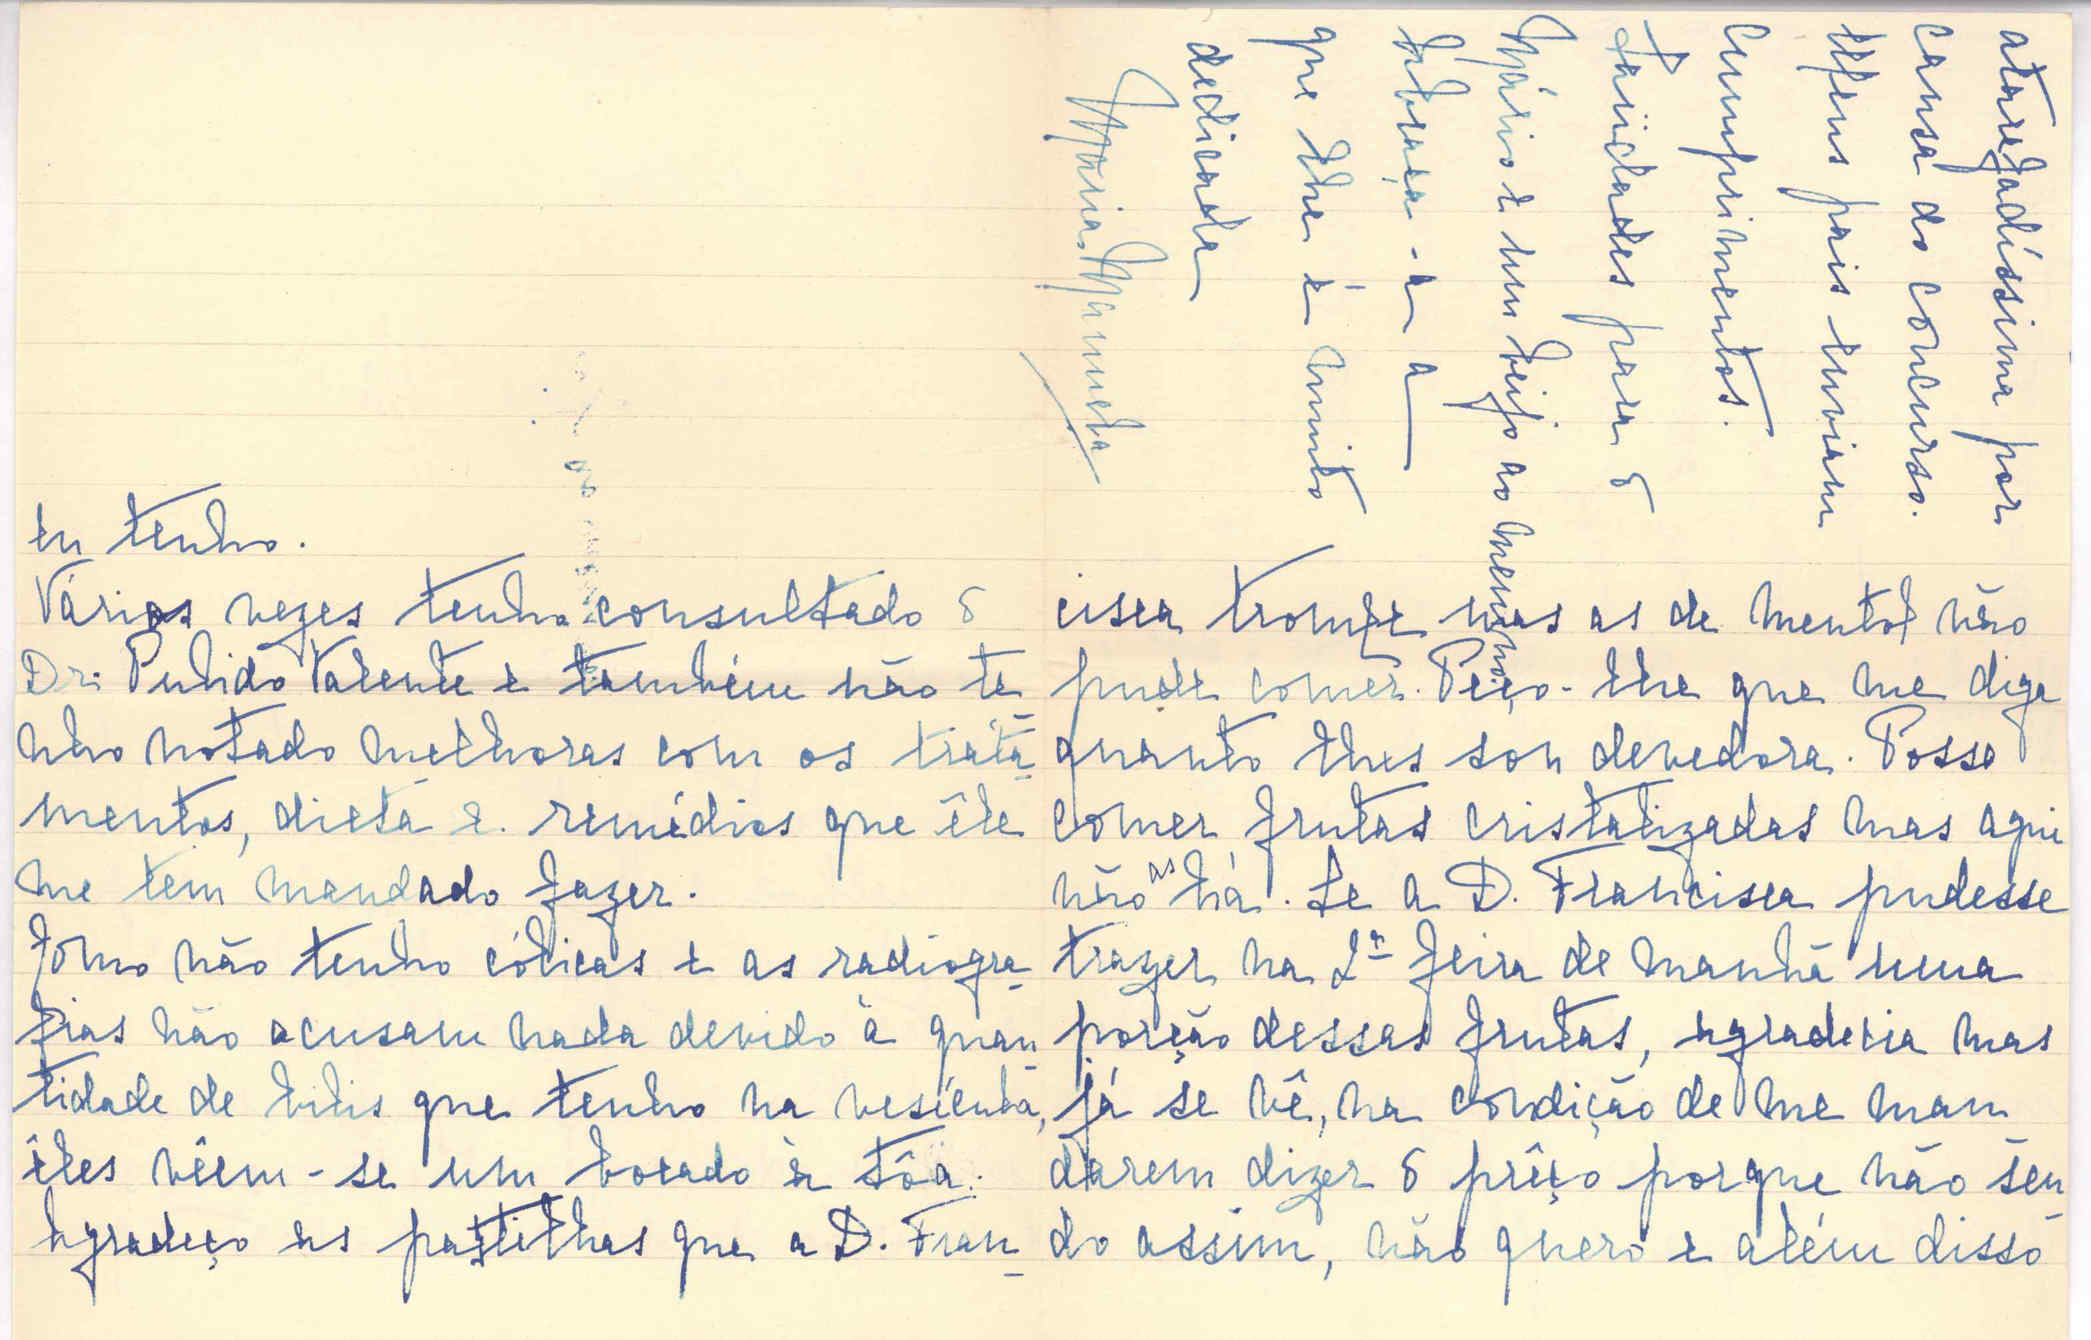 eu tenho.
Várias vezes tenho consultado o
Dr. Pulido Valente e também não te
nho notado melhoras com os trata-
mentos, dieta e remédios que êle
me tem mandado fazer.
Como não tenho cólicas e as radiogra-
fias não acusam nada devido à quan-
tidade de bilis que tenho na vesícula,
êles vêem-se um bocado à tôa.
Agradeço as pastilhas que a D. Fran-
cisca trouxe mas as de mentol não
pude comer. Peço-lhe que me diga
quanto lhes sou devedora. Posso
comer frutas cristalizadas mas aqui
não as há. Se a D. Francisca pudesse
trazer na 2ª feira de manhã uma
porção dessas frutas, agradecia mas
já se vê, na condição de me man
darem dizer o prêço porque não sen-
do assim, não quero e além disso
atarefadíssima por
causa do concurso.
Meus pais enviam
cumprimentos.
Saüdades para o
Mário e um beijo ao menino
Abraça-a a
que lhe é muito
dedicada
Maria Manuela